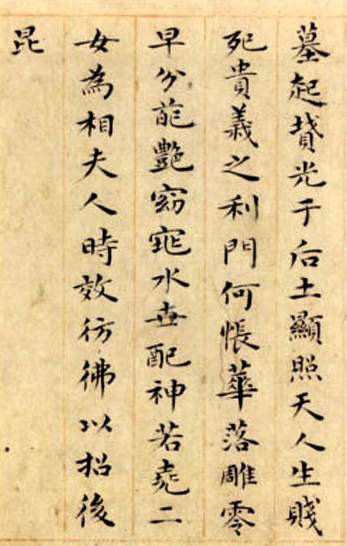 墓起墳光于后土顯照天人生賤
死貴義之利門何悵華落雕零
早分葩豔窈窕永世配神若堯二
女為相夫人時效彷彿以招後
昆